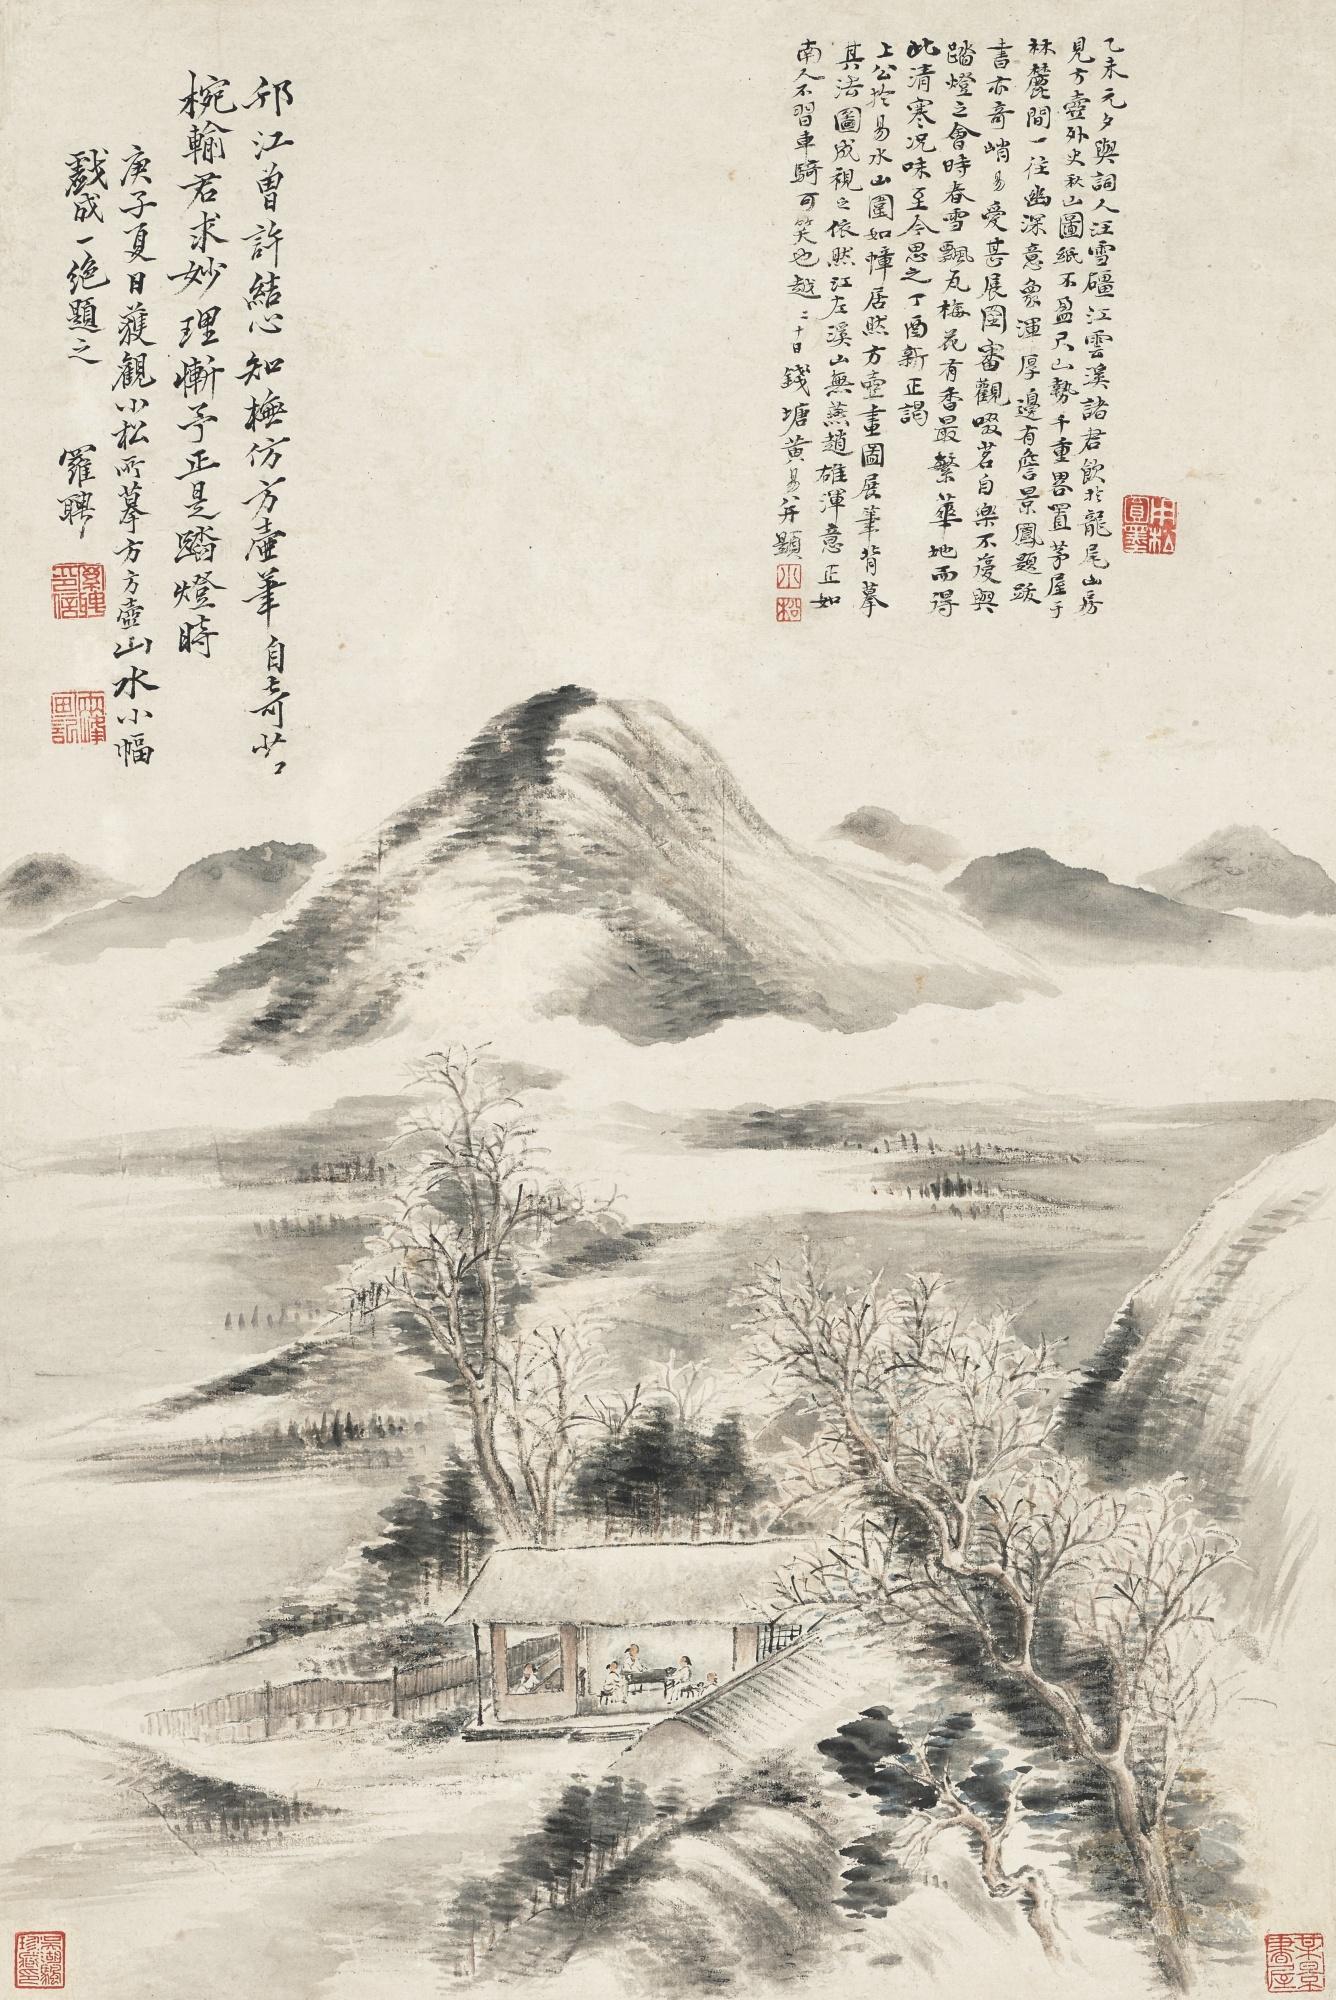 乙未元夕與詞人汪雪礓江雲溪諸君飲於龍尾山房
見方壺外史秋山圖紙不盈尺山勢千重畧置茅屋于
林麓間一往幽深意象渾厚邊有詹景鳳題跋
書亦奇峭易愛甚展圖審觀啜茗自樂不復與
踏燈之會時春雪飄瓦梅花有香最繁華地而得
此清寒况味至今思之丁酉新正謁
上公於易水山圍如幛居然方壺畫圖展筆背摹
其法圖成視之依然江左溪山無燕趙雄渾意正如
南人不習車騎可笑也越二十日錢塘黄易并題
小松
邗江曾許結心知橅仿方壺筆自奇茗
椀輸君求妙理慚予正是踏燈時
庚子夏日獲觀小松所摹方方壺山水小幅
戲成一絶題之 羅聘